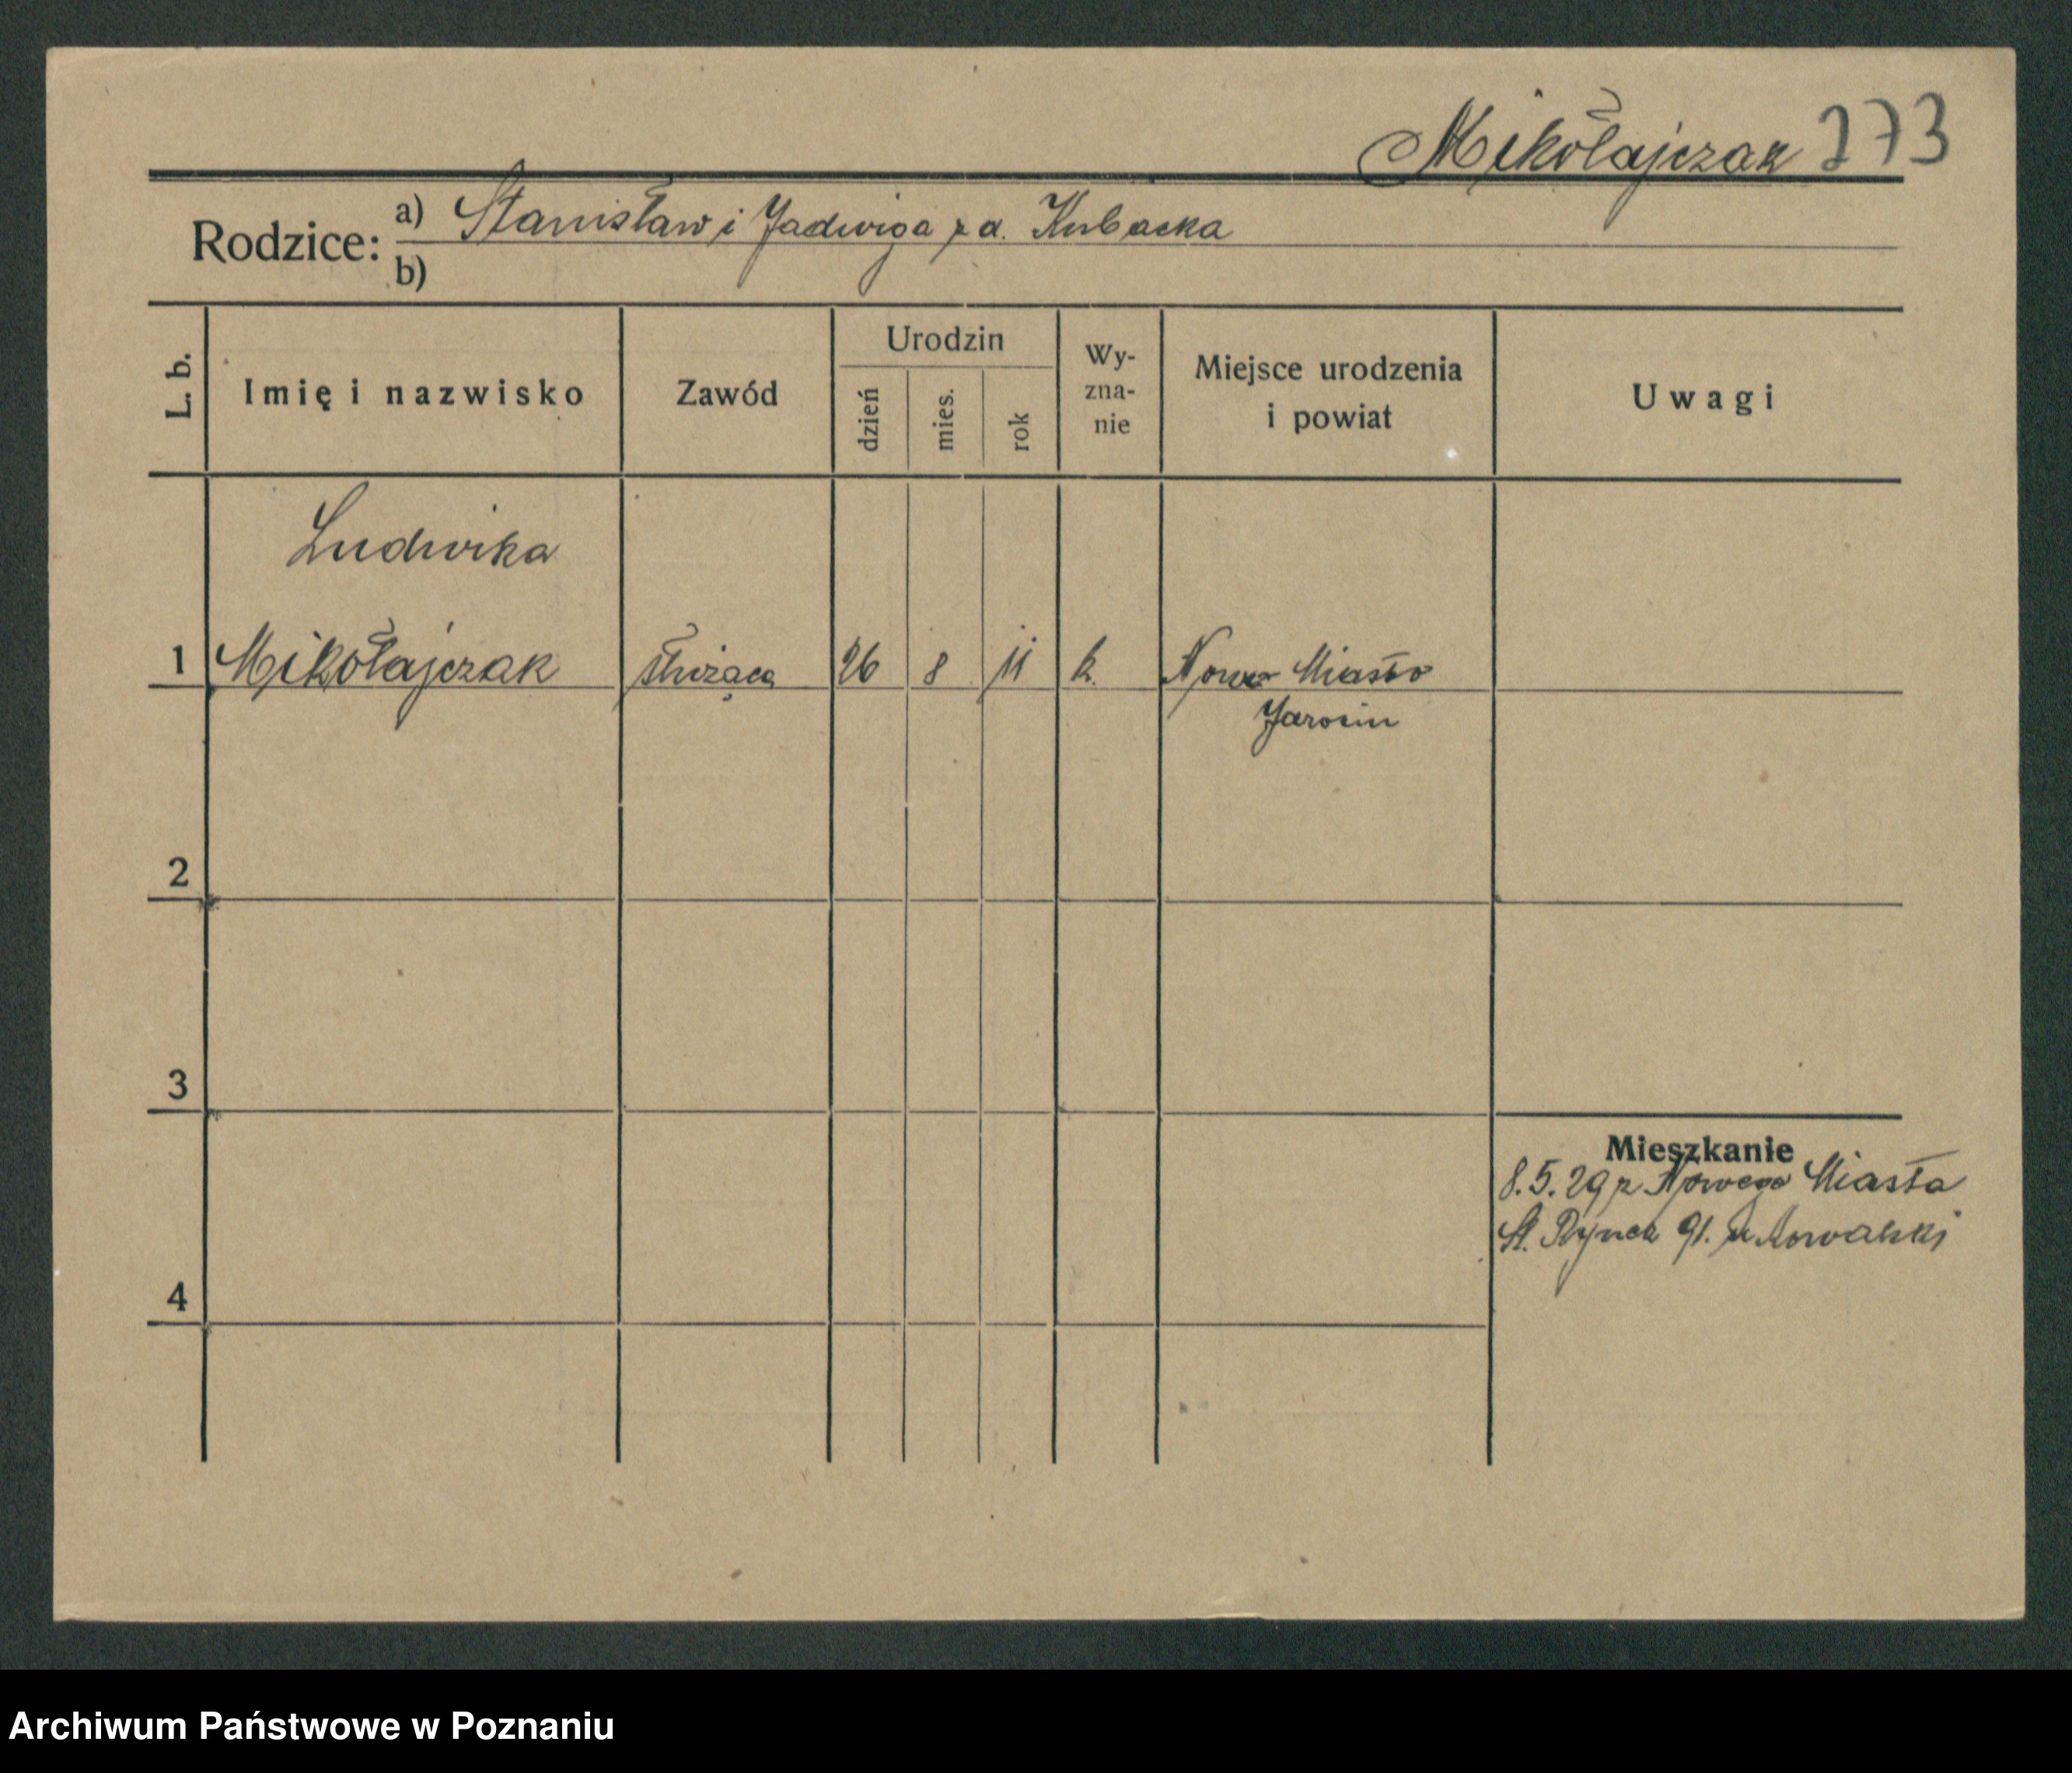 Mikołajczak 273
Rodzice: a) Stanisław i Jadwiga z d. Kubacka
b)
L. b.
Imię i nazwisko
Zawód
Urodzin
dzień
mies.
rok
Wy-
zna-
nie
Miejsce urodzenia
i powiat
Uwagi
Ludwika
1 Mikołajczak służąca 26 8 11 k. Nowe Miasto
Jarocin
2
3
Mieszkanie
8.5.29 z Nowego Miasta
St. Rynek 91. Kowalski
4
Archiwum Państwowe w Poznaniu